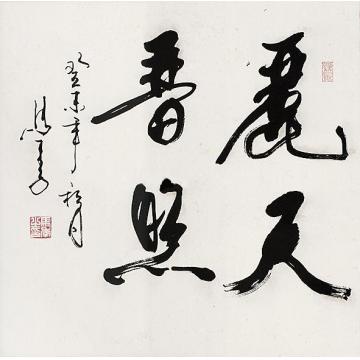 麗天
普照
癸未年秋月